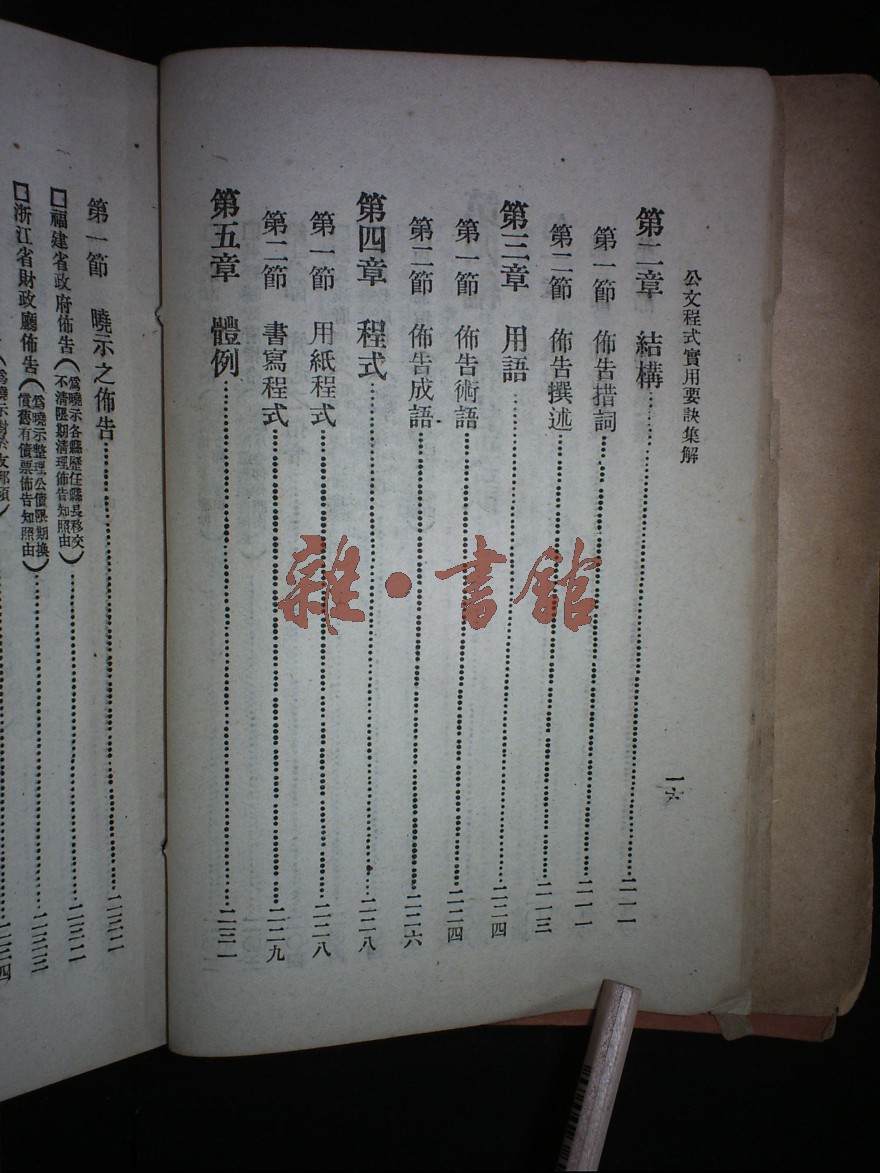 公文程式實用要訣集解
一六
第二章 結構……二一一
第一節 佈告措詞……二一一
第二節 佈告撰述……二一三
第三章 用語……二二四
第一節 佈告術語……二二四
第二節 佈告成語……二二六
第四章 程式……二二八
第一節 用紙程式……二二八
第二節 書寫程式……二二九
第五章 體例……二三一
第一節 曉示之佈告……二三二
□福建省政府佈告(為曉示各縣歷任縣長移交不清限期清理佈告知照由)……二三二
□浙江省財政廳佈告(為曉示整理公債限期換償舊有債票佈告知照由)……二三三
二三四
雜·書館